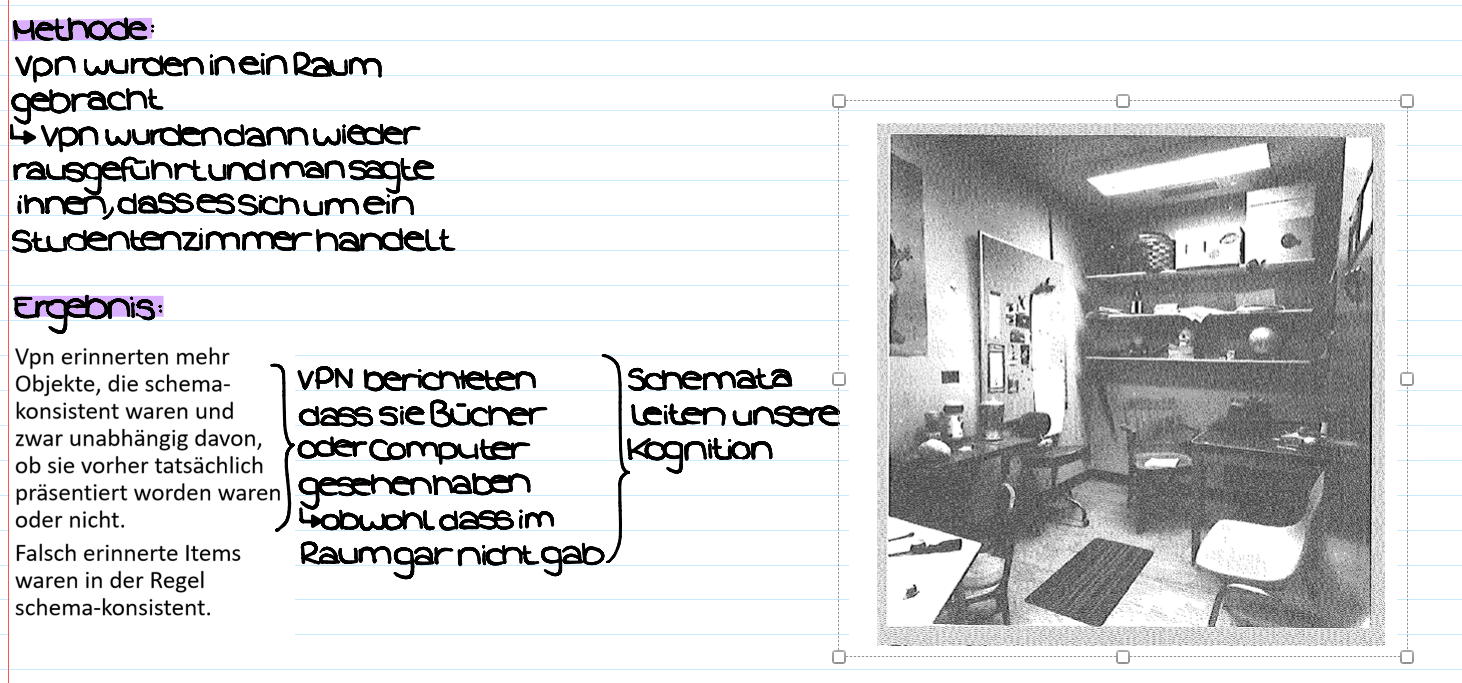 Methode:
Vpn wurden in ein Raum
gebracht
↳ Vpn wurden dann wieder
rausgeführt und man sagte
ihnen, dass es sich um ein
Studentenzimmer handelt
Ergebnis:
Vpn erinnerten mehr
Objekte, die schema-
konsistent waren und
zwar unabhängig davon,
ob sie vorher tatsächlich
präsentiert worden waren
oder nicht.
Falsch erinnerte Items
waren in der Regel
schema-konsistent.
VPN berichteten
dass sie Bücher
oder Computer
gesehen haben
↳ obwohl dass im
Raum gar nicht gab
Schemata
leiten unsere
Kognition